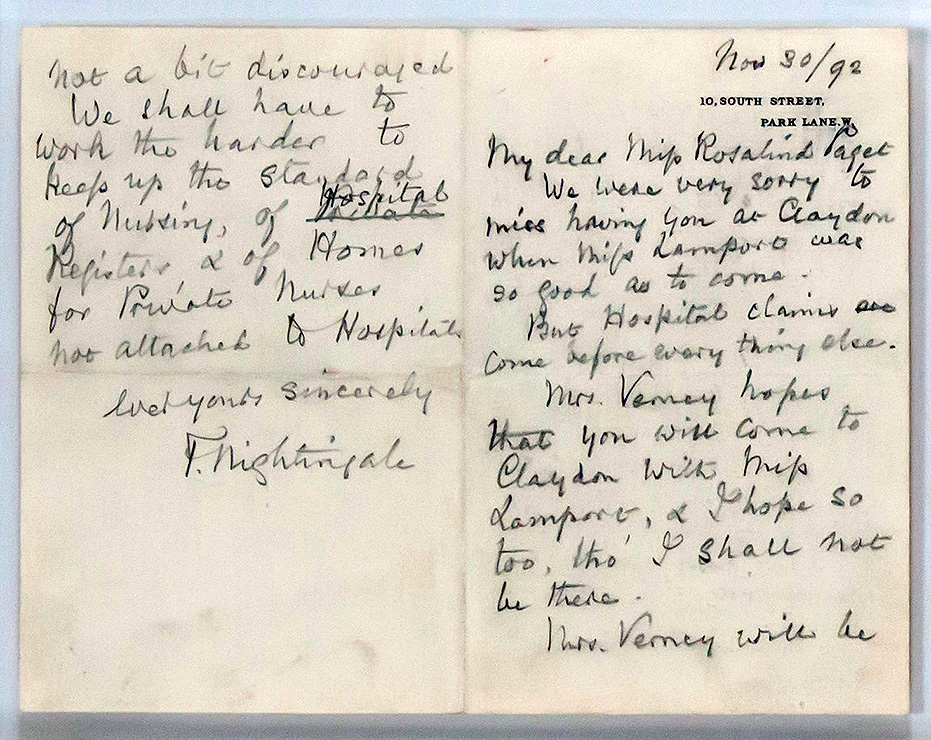 Nov 30/92
10, SOUTH STREET,
PARK LANE. W.
My dear Miss Rosalind Paget
We were very sorry to
miss having you at Claydon
when Miss Lamport was
so good as to come.
But Hospital claims
come before every thing else.
Mrs. Verney hopes
that you will come to
Claydon with Miss
Lamport, & I hope so
too, tho' I shall not
be there.
Mrs. Verney will be
not a bit discouraged
We shall have to
work the harder to
keep up the standard
Hospital
of Nursing, of Private
Registers & of Homes
for Private Nurses
not attached to Hospitals
ever yours sincerely
F. Nightingale